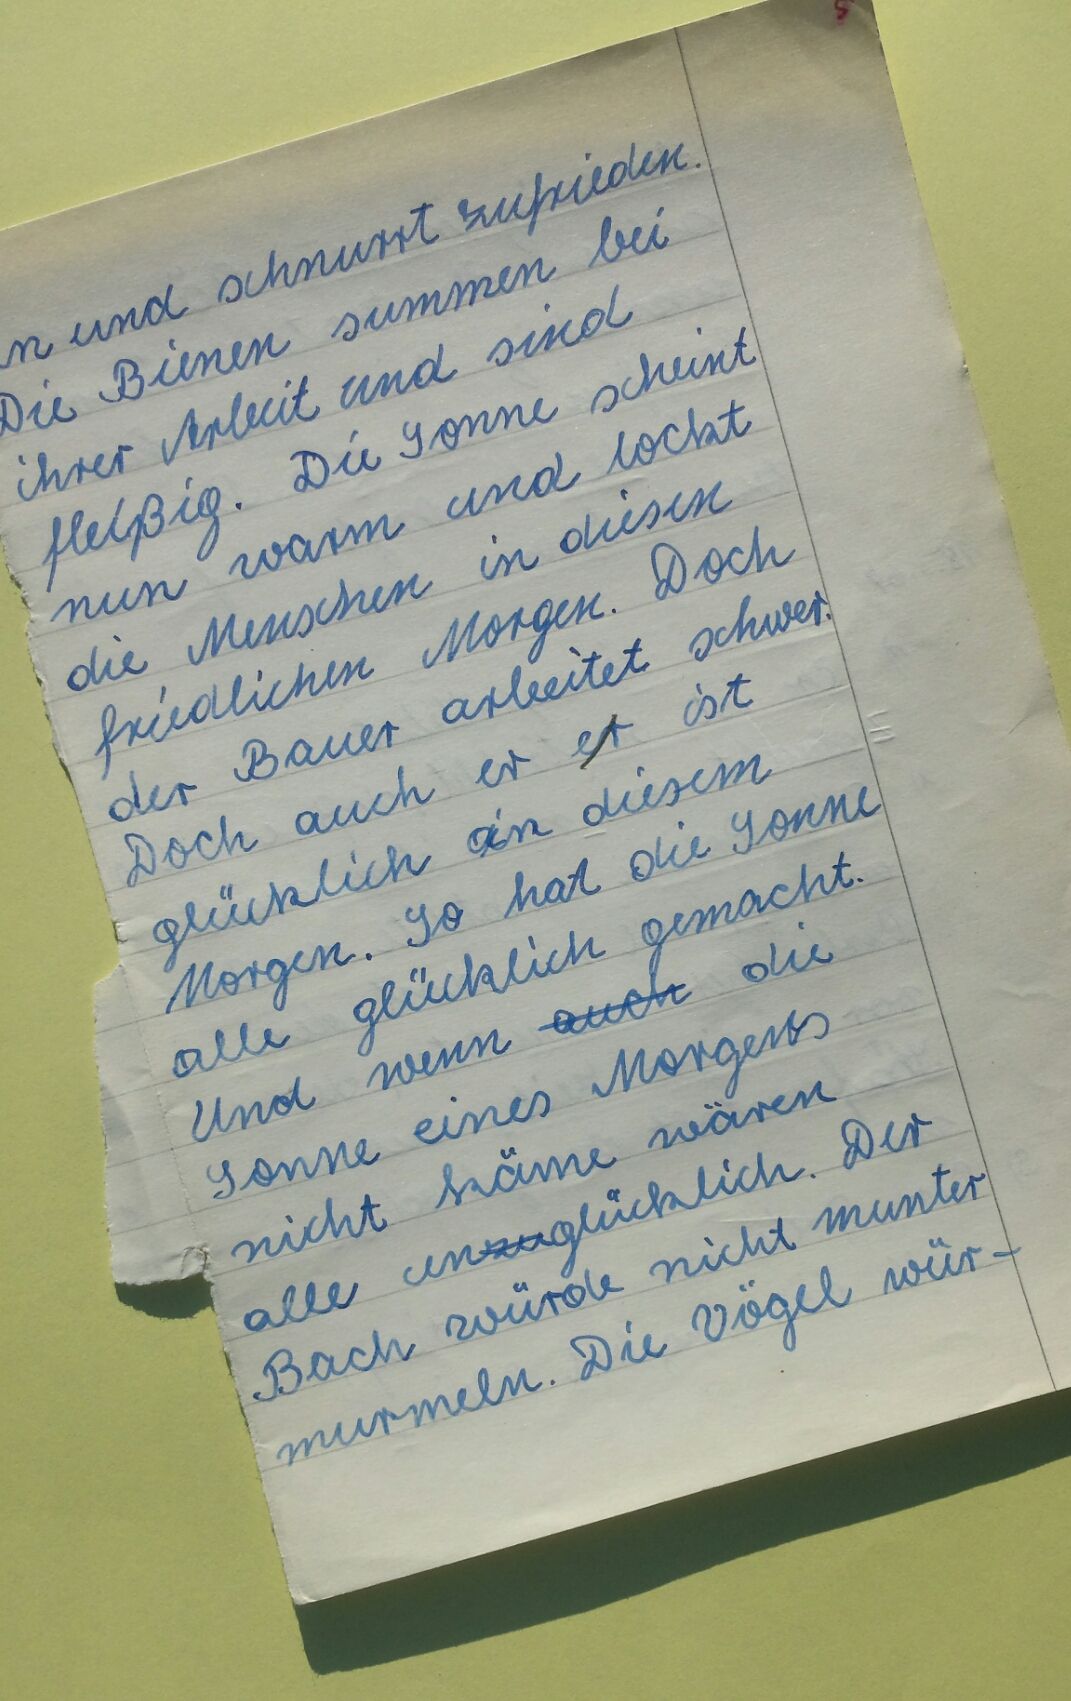 n und schnurrt zufrieden.
Die Bienen summen bei
ihrer Arbeit und sind
fleißig. Die Sonne scheint
nun warm und lockt
die Menschen in diesen
friedlichen Morgen. Doch
der Bauer arbeitet schwer.
Doch auch er er ist
glücklich in diesem
Morgen. So hat die Sonne
alle glücklich gemacht.
Und wenn auch die
Sonne eines Morgens
nicht käme wären
alle unzuglücklich. Der
Bach würde nicht munter
murmeln. Die Vögel wür-